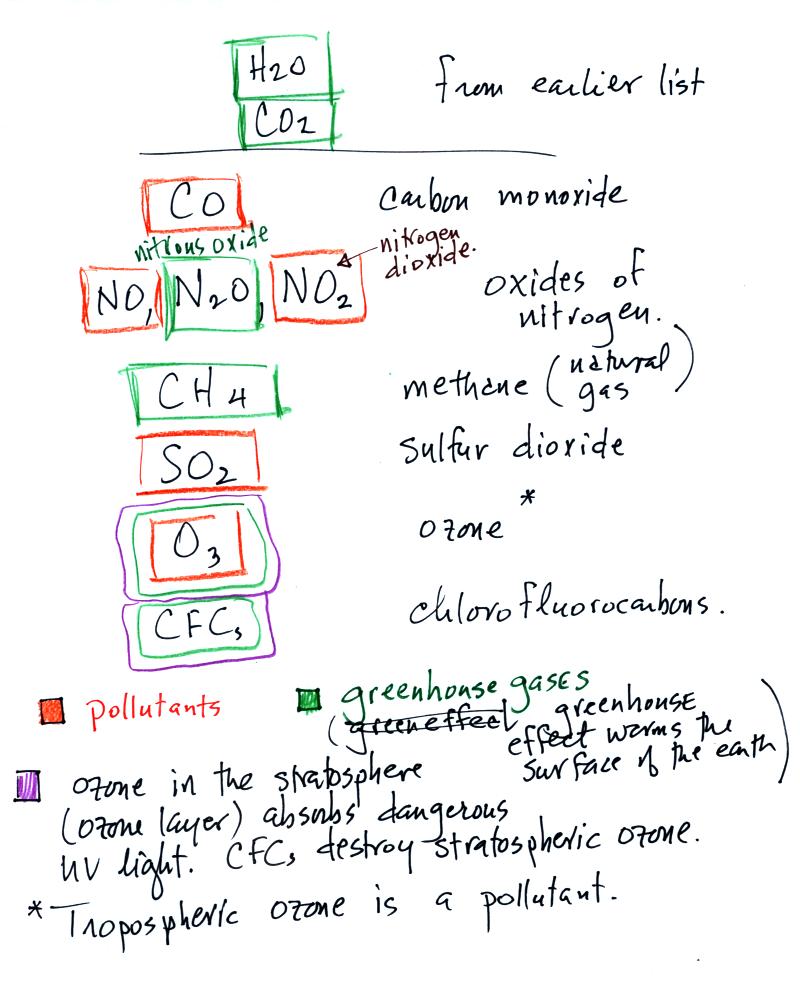 H2O
from earlier list
CO2
CO
carbon monoxide
nitrous oxide
nitrogen
dioxide.
NO, N2O, NO2
oxides of
nitrogen.
CH4
methane (natural
gas)
SO2
sulfur dioxide
O3
ozone *
CFCs
chlorofluorocarbons.
pollutants
greenhouse gases
(green effect greenhouse
effect warms the
surface of the earth)
ozone in the stratosphere
(ozone layer) absorbs dangerous
UV light. CFCs destroy stratospheric ozone.
* Tropospheric ozone is a pollutant.